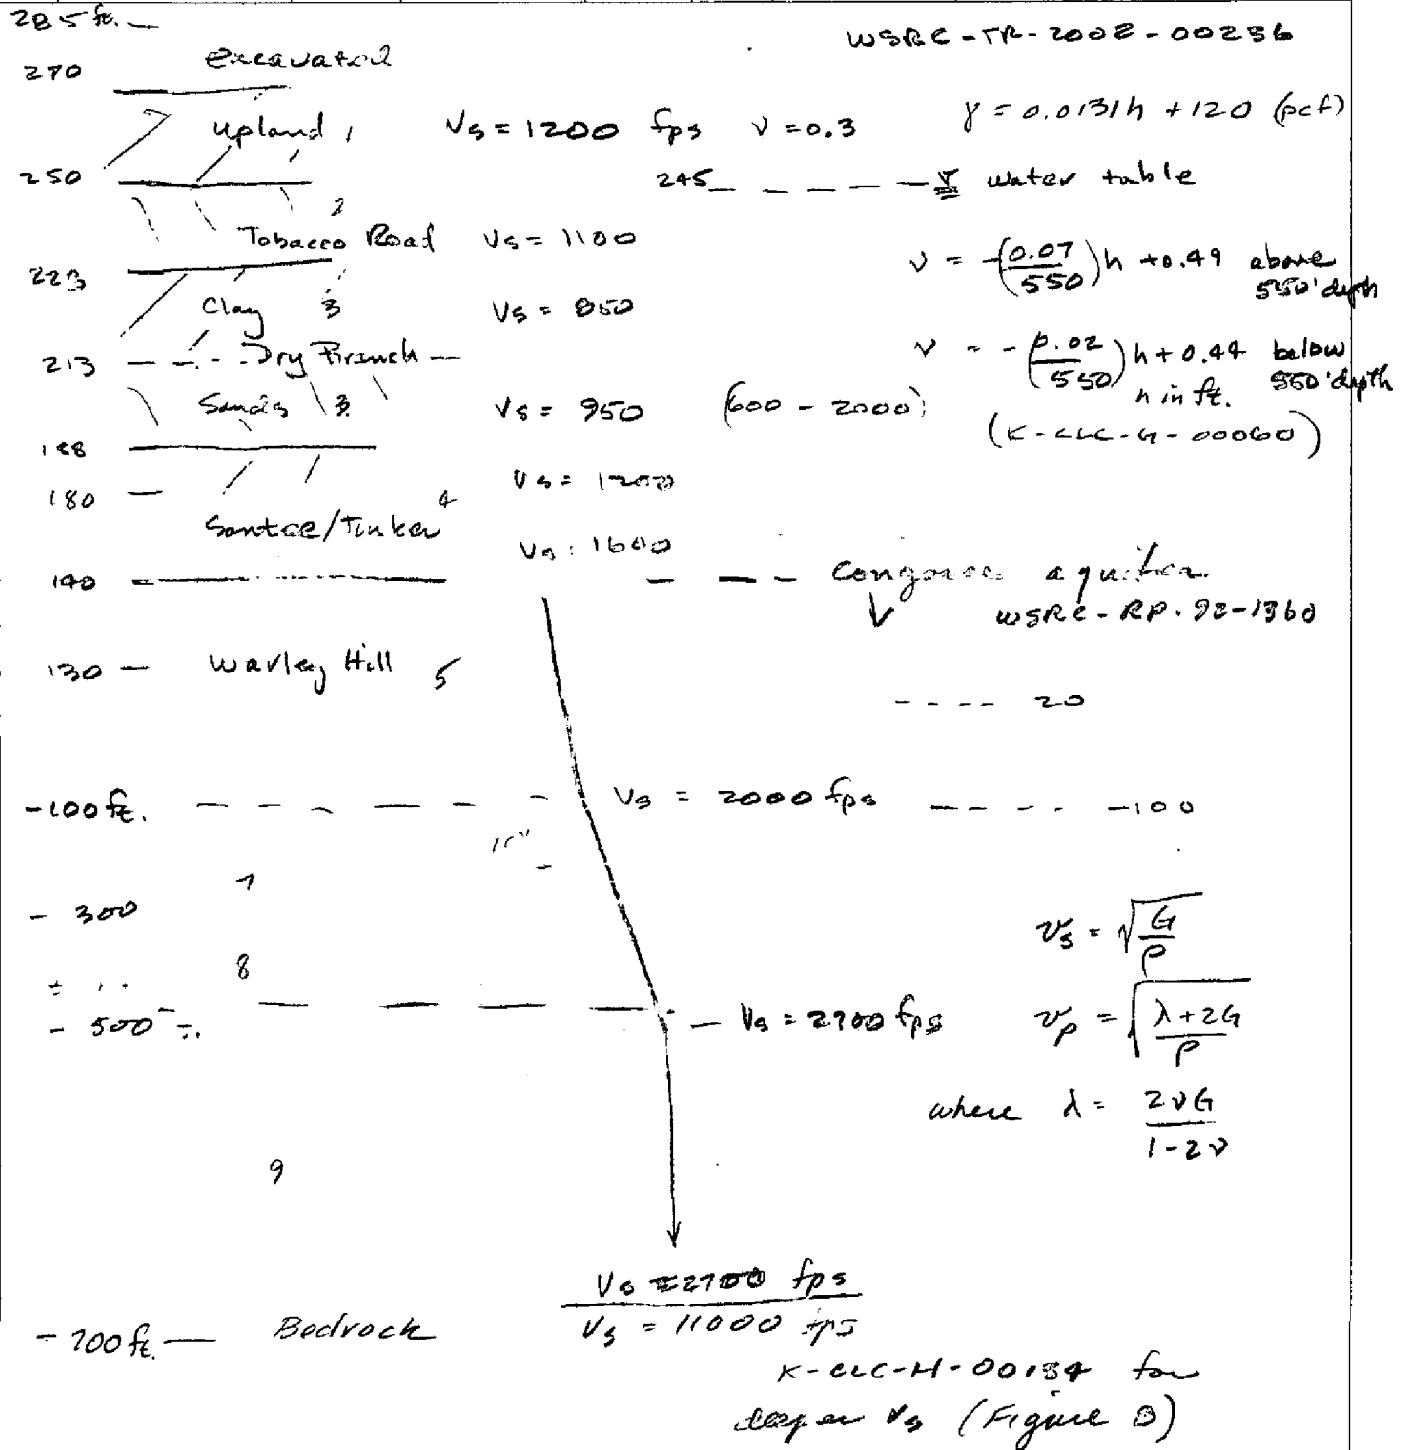 285 ft. —
WSRC-TR-2002-00236
Excavated
270
Upland 1 Vs = 1200 fps ν = 0.3 γ = 0.0131h + 120 (pcf)
250
245 water table
2
Tobacco Road Vs = 1100
ν = -(0.07/550)h + 0.49 above 550' depth
223
Clay 3 Vs = 850
213 Dry Branch
ν = -(0.02/550)h + 0.44 below 550' depth
h in ft.
Sands 3 Vs = 950 (600 - 2000)
(K-CLC-G-00060)
188
180 Vs = 1200
Santee/Tinker 4
Vs = 1600
140 Congaree aquifer
WSRC-RP-92-1360
130 — Warley Hill 5
---- 20
-100 ft. Vs = 2000 fps -100
7
- 300
vs = √(G/ρ)
8
- 500 Vs = 2700 fps vp = √((λ+2G)/ρ)
where λ = 2νG/(1-2ν)
9
Vs = 2700 fps
- 700 ft. — Bedrock Vs = 11000 fps
K-CLC-H-00134 for
deeper Vs (Figure B)